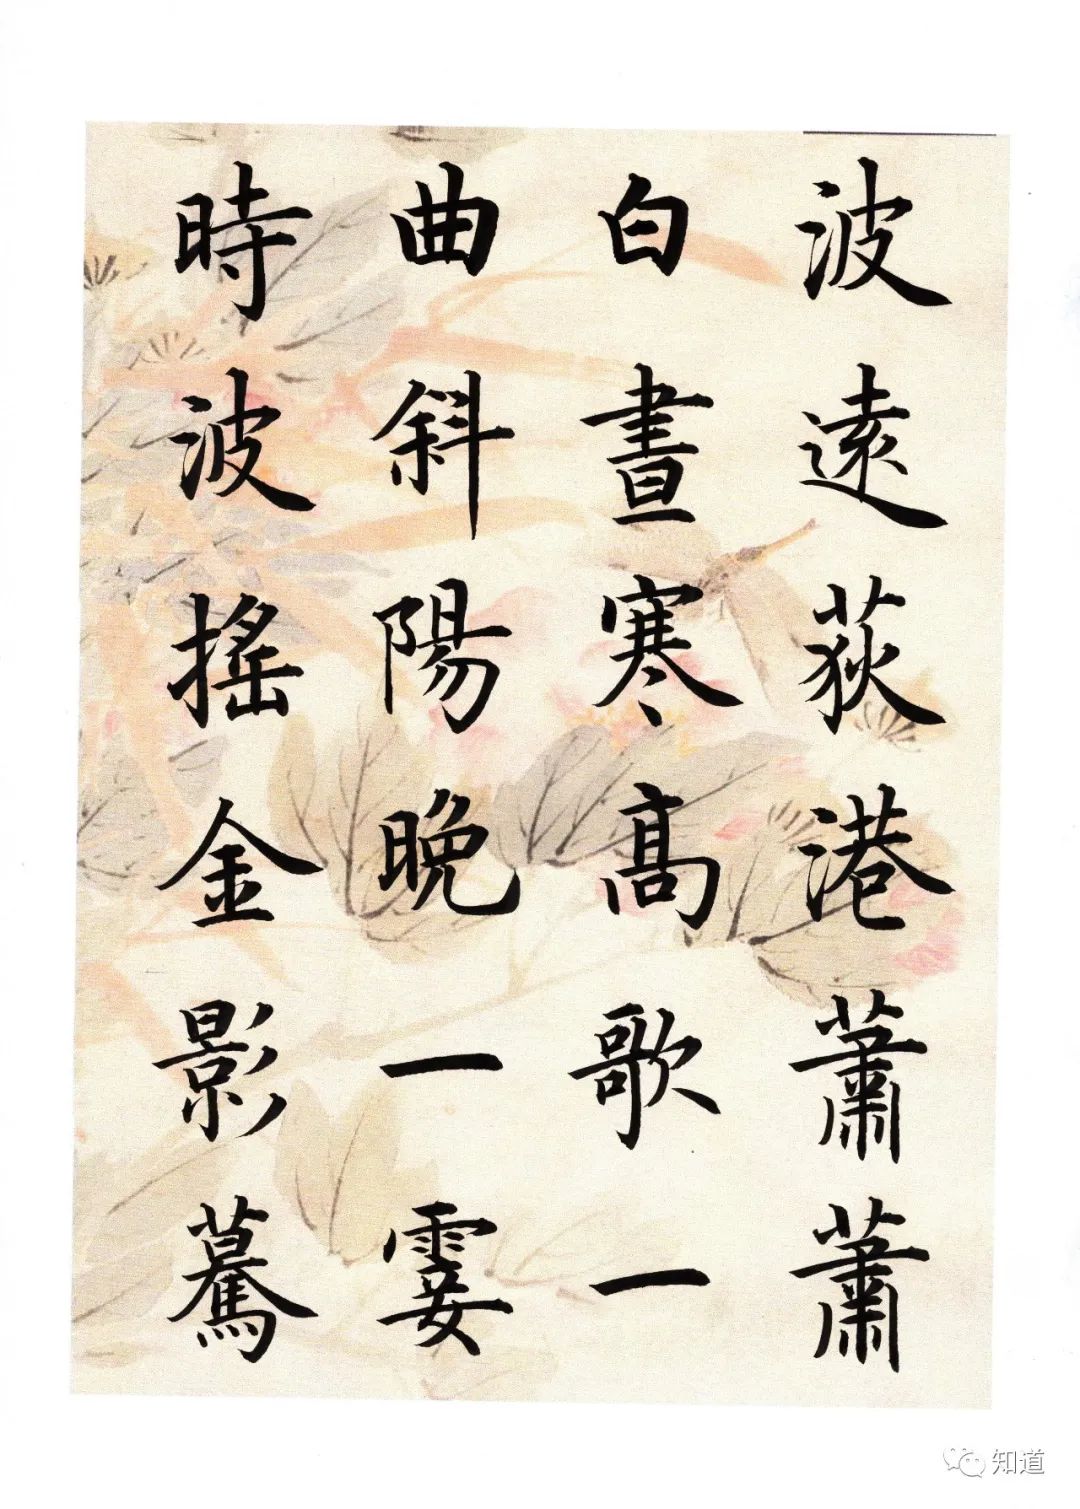 波遠荻港蕭蕭
白晝寒高歌一
曲斜陽晚一霎
時波搖金影驀
知道